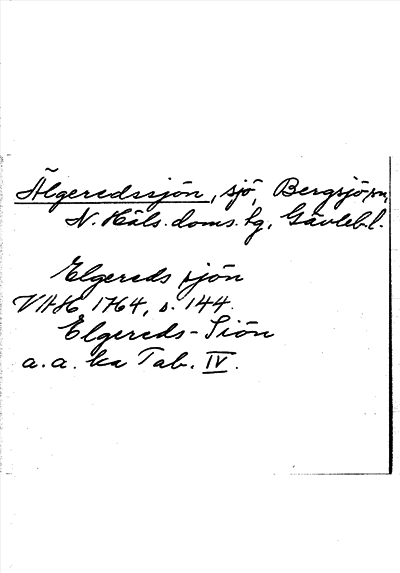 Älgeredssjön, sjö, Bergsjö sn,
N. Häls. doms. tg, Gävleb.l.
Elgereds sjön
VAH 1764, s. 144.
Elgereds-Siön
a. a. ka Tab. IV.